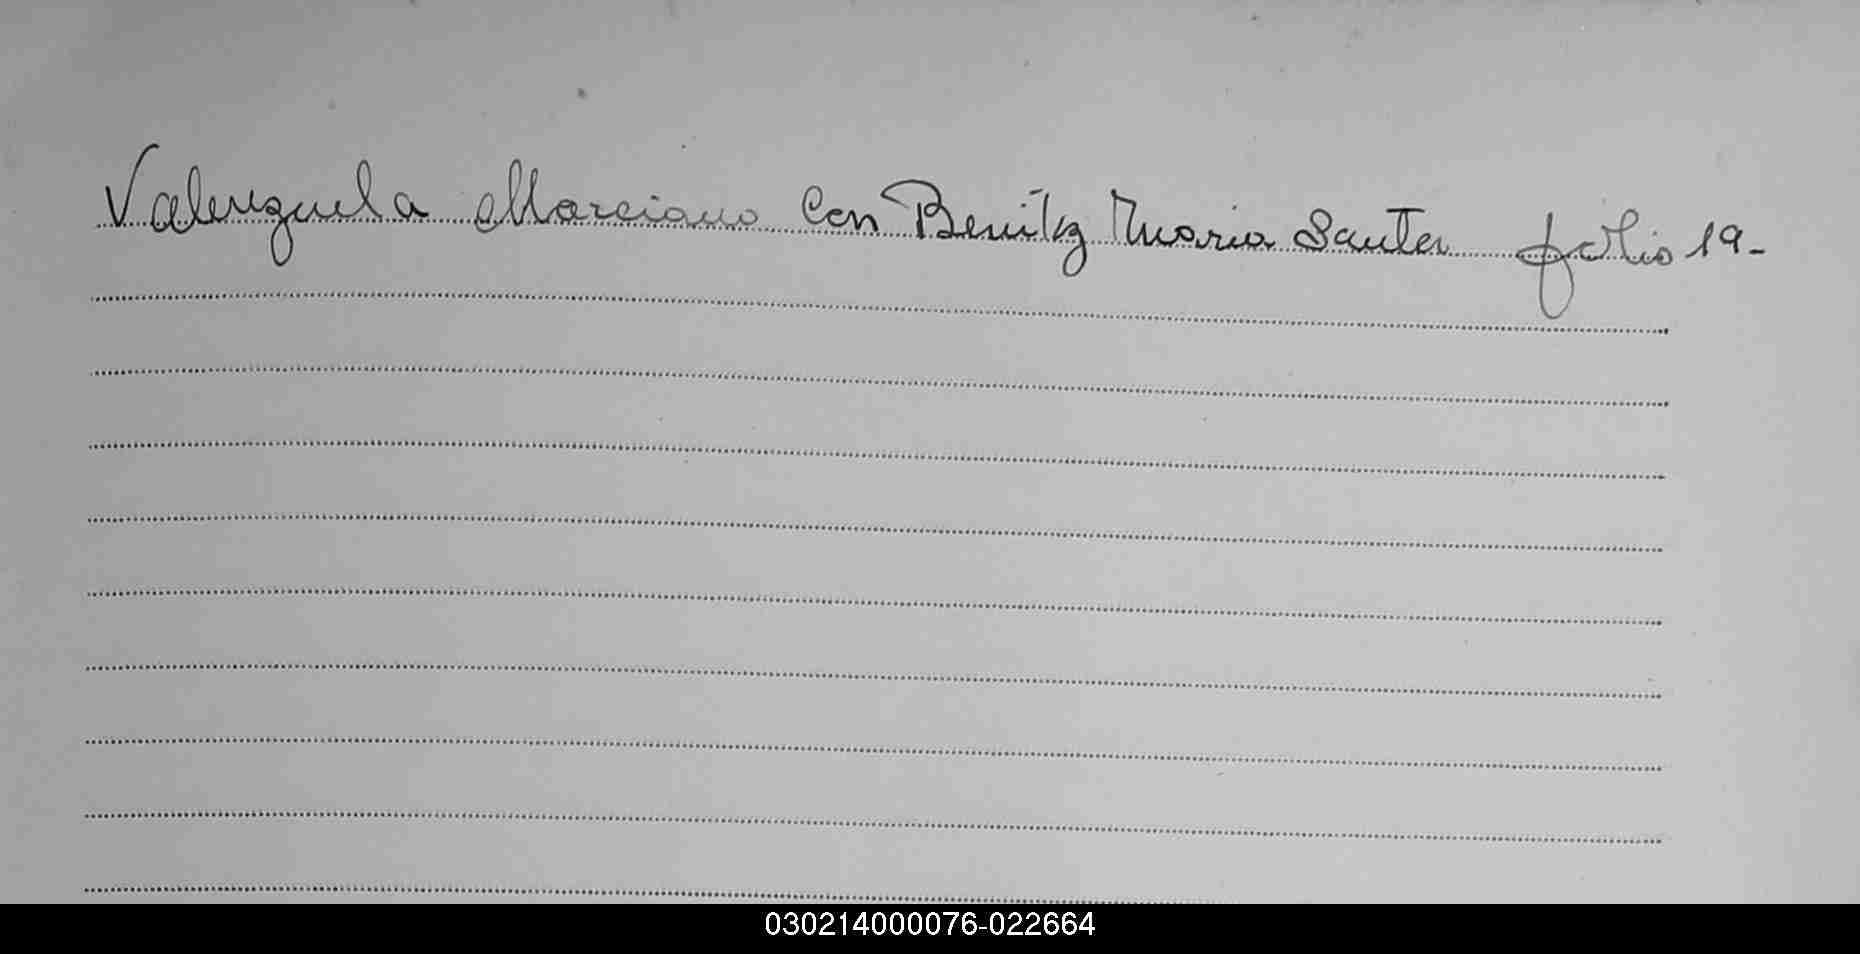 Valenzuela Marciano Con Benitez Maria Santa folio 19-
030214000076-022664